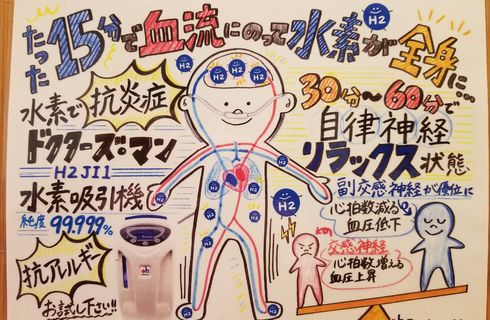 たった15分で血流にのって水素が全身に…
水素で抗炎症
ドクターズ・マン
H2JI1
水素吸引機
純度 99.999%
抗アレルギー
お試し下さい!!
H2
H2
H2
H2
H2
H2
H2
H2
H2
30分〜60分で
自律神経
リラックス状態
副交感神経が優位に
心拍数減る
血圧低下
交感神経
心拍数増える
血圧上昇